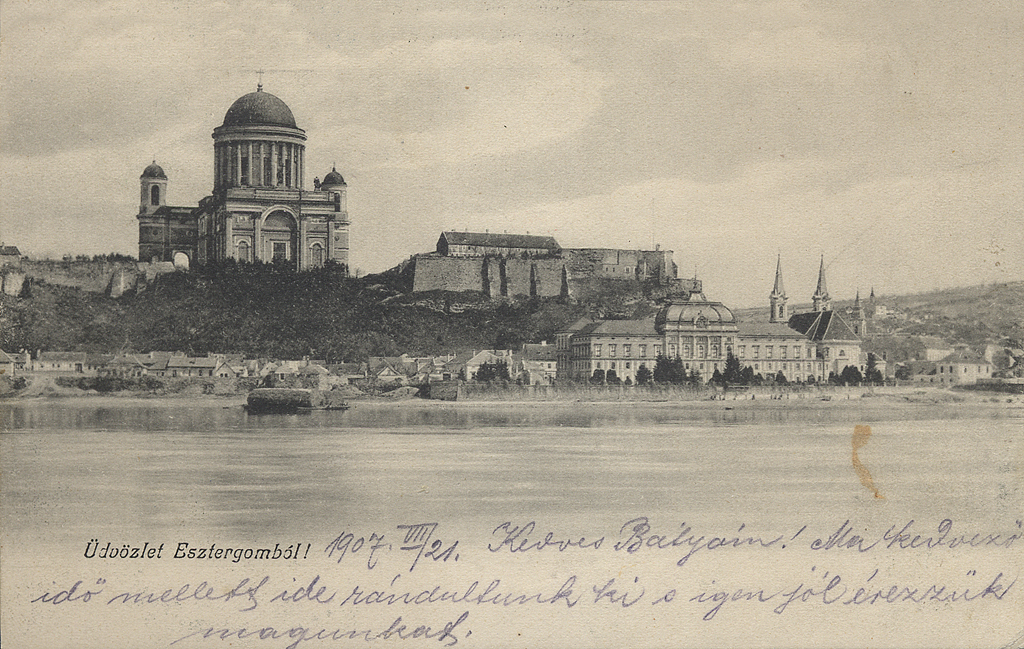 Üdvözlet Esztergomból! 1907. VII/21. Kedves Bátyám! Ma kedvező
idő mellett ide rándultunk ki s igen jól érezzük
magunkat.